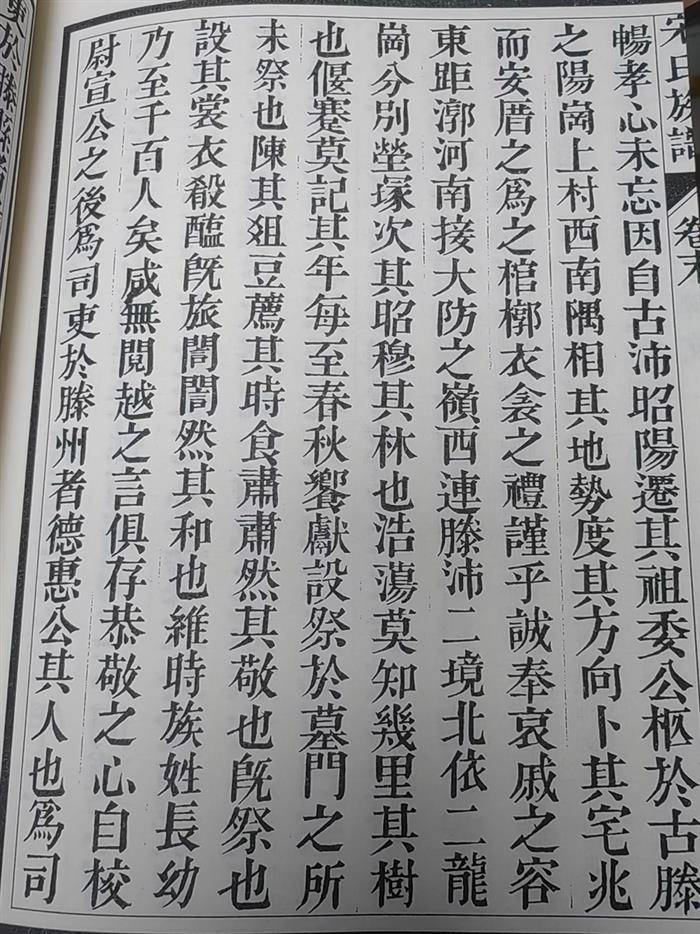 宋氏族譜 卷末
暢孝心未忘因自古沛昭陽遷其祖委公柩於古滕
之陽崗上村西南隅相其地勢度其方向卜其宅兆
而安厝之爲之棺槨衣衾之禮謹乎誠奉哀戚之容
東距漷河南接大防之嶺西連滕沛二境北依二龍
崗分別塋塚次其昭穆其林也浩蕩莫知幾里其樹
也偃蹇莫記其年每至春秋饗獻設祭於墓門之所
未祭也陳其俎豆薦其時食肅肅然其敬也旣祭也
設其裳衣殺醢旣旅誾誾然其和也維時族姓長幼
乃至千百人矣咸無閱越之言俱存恭敬之心自校
尉宣公之後爲司吏於滕州者德惠公其人也爲司